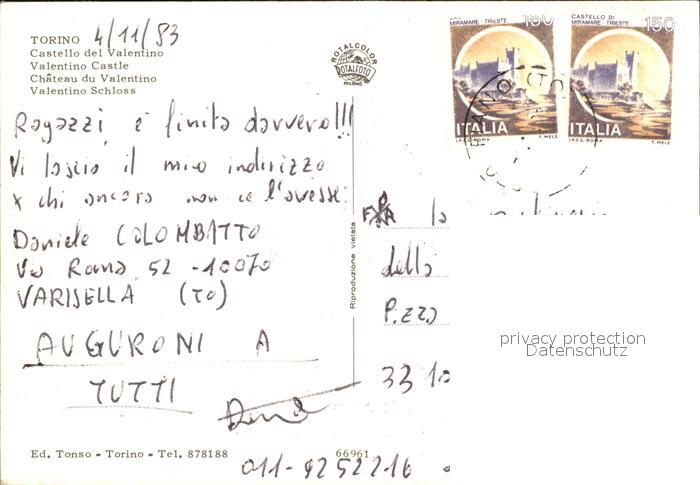 TORINO 4/11/83
Castello del Valentino
Valentino Castle
Château du Valentino
Valentino Schloss
ROTALCOLOR
ROTALFOTO
MILANO
MIRAMARE - TRIESTE 150
ITALIA
I.P.Z.S. - ROMA T. MELE
CASTELLO DI
MIRAMARE - TRIESTE 150
ITALIA
I.P.Z.S. - ROMA T. MELE
Ragazzi è finita davvero!!!
Vi lascio il mio indirizzo
x chi ancora non ce l'avesse:
Daniele COLOMBATTO
Via Roma 52 - 10070
VARISELLA (TO)
AUGURONI A
TUTTI
Riproduzione vietata
della
P.zza
33 10
privacy protection
Datenschutz
Ed. Tonso - Torino - Tel. 878188 66961
011-9252216